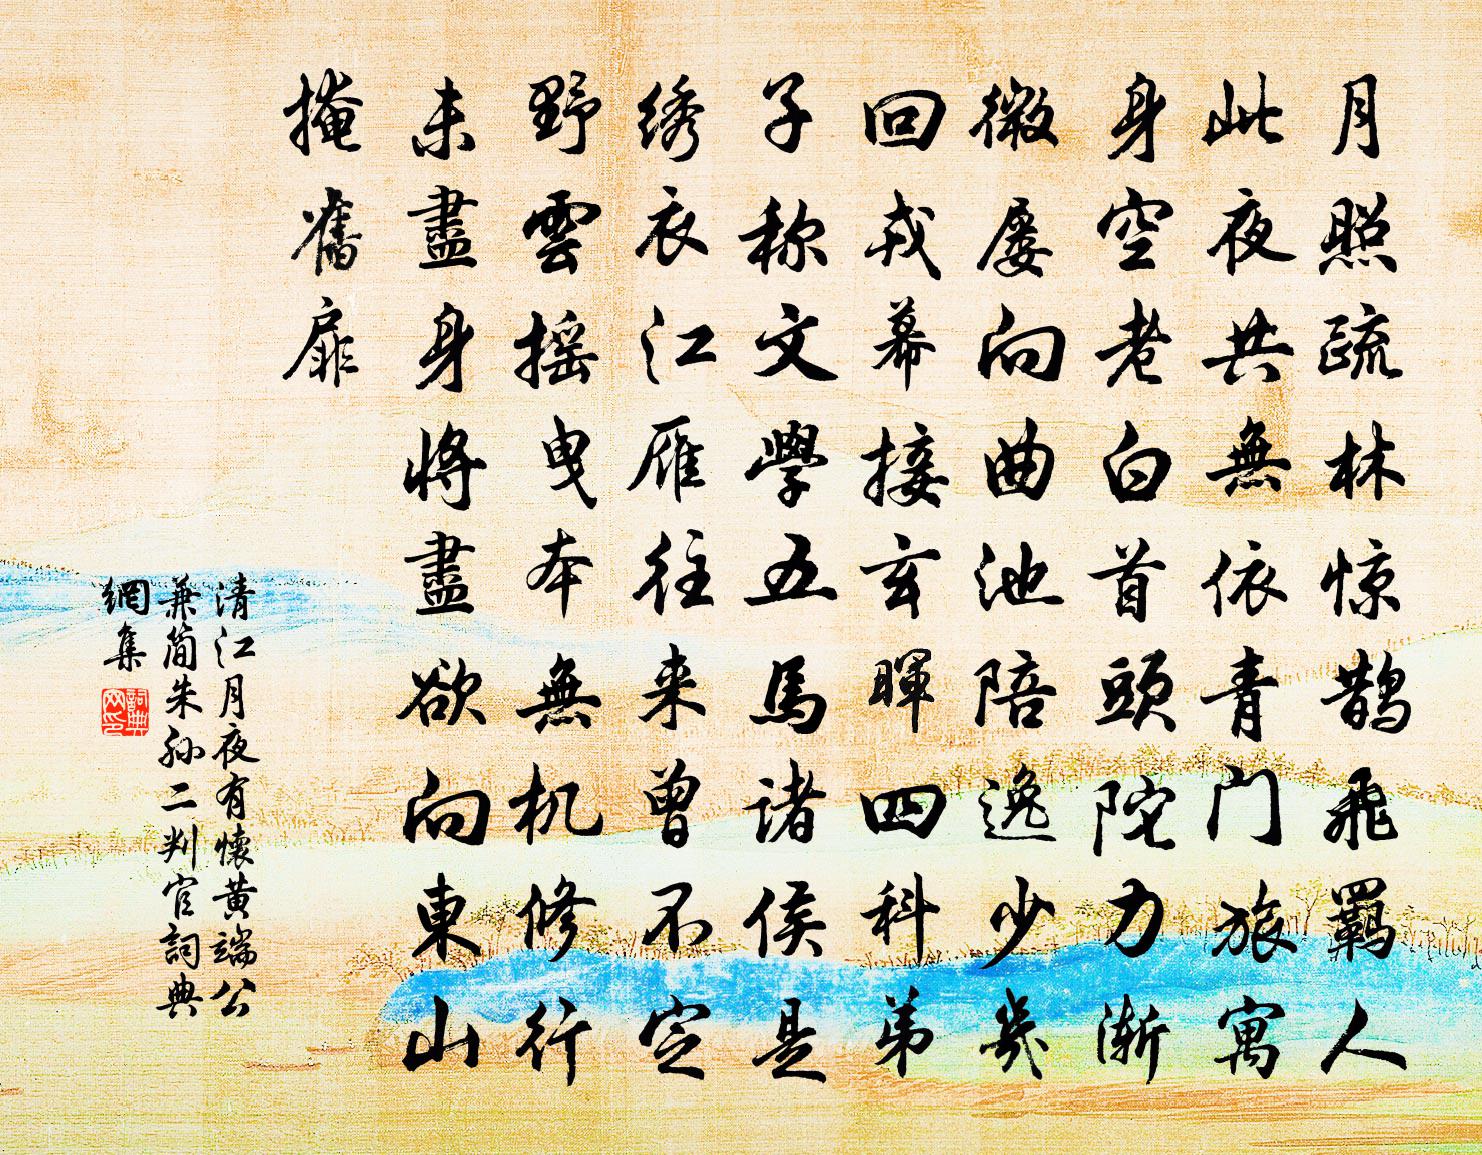 月照疏林惊鹊飛羈人
此夜共無依青门旅寓
身空老白首頭陀力渐
微屡向曲池陪逸少幾
回戎幕接玄暉四科弟
子称文學五馬诸侯是
绣衣江雁往来曾不定
野雲摇曳本無机修行
未盡身將盡欲向東山
掩舊扉
清江月夜有懷黄端公
兼简朱孙二判官詞典
網集
詞典
网印